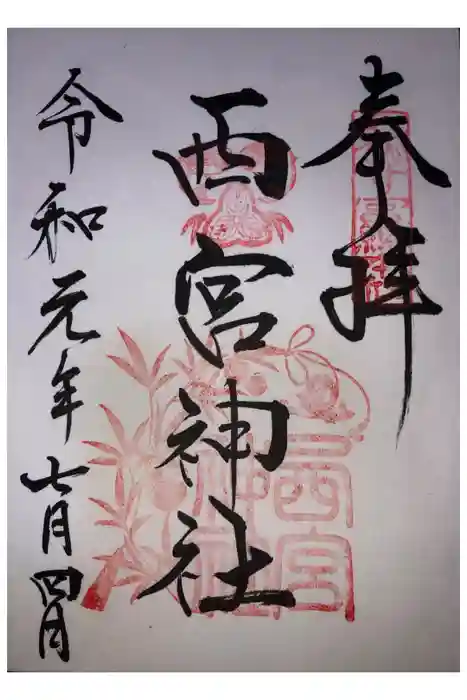 奉拝
西宮神社
令和元年七月四日